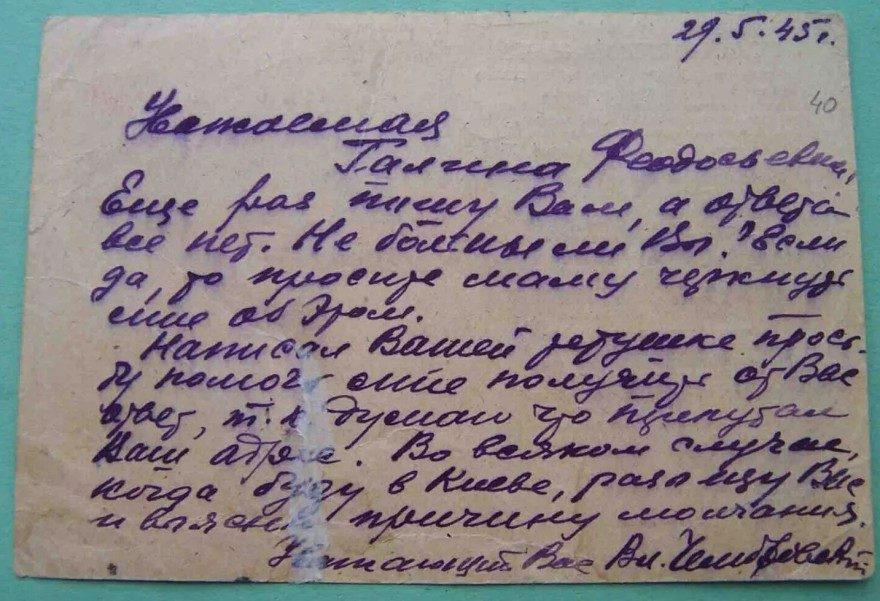 29.5.45г.
40
Уважаемая
Галина Феодосьевна!
Еще раз пишу Вам, а ответа
все нет. Не больны ли Вы? Если
да, то просите маму черкнуть
мне об этом.
Написал Вашей тетушке прось-
бу помочь мне получить от Вас
ответ, т.к. думаю что припутал
Ваш адрес. Во всяком случае,
когда буду в Киеве, разыщу Вас
и выясню причину молчания.
Уважающий Вас Вл.